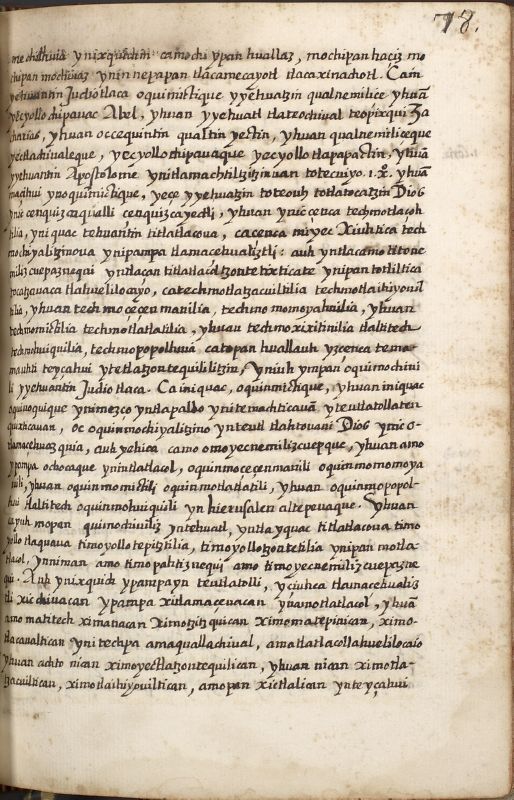 78.
mechihiuia ynixquichtin camochi ypan huallaz, mochipan haciz mo
chipan mochiuaz ynin nepapan tlacamecayotl tlacaxinachotl. Cain
yehuantin Judiotlaca oquimictique yyehuatzin qualnemilice yhuã
yecyollochipauac Abel, yhuan yyehuatl tlateochiual teopixqui Za
charias, yhuan occequintin qualtin yectin, yhuan qualnemiliceque
yectlachiualeque, yecyollochipauaque yecyollotlapapactin, yhuã
yyehuantin Apostolome ynitlamachtilitzitzinuan totecuiyo. yhuan
maçihui ynoquimictique, yeçe yyehuatzin toteouh totlatocatzin Dios
ynic cenquizcaqualli cenquizcayectli, yhuan ynic cenca techmotlaçoh
tilia, yniquac tehuantin titlatlacoua, cacenca miyec Xiuhtica tech
mochiyalitzinoua ynipampa tlamacehualiztli: auh yntlacamo titone
milizcuepaznequi yntlacan titlatlacoltzontetixticate ynipan totliltica
tocatzauaca tlahuelilocayo, catechmotlatzacuiltilia techmotlaihiyouil
tilia, yhuan techmoceçenmanilia, techmomomoyahuilia, yhuan
techmomictilia techmotlatlatilia, yhuan techmoxixitinilia tlaltitech
techmohuiquilia, techmopopolhuia catepan huallauh yzcenca tema
mauhti teyçahui ytetlatzontequililitzin, Yniuh ympan oquimochiui
li yyehuantin Judiotlaca. Ca iniquac, oquinmictique, yhuan iniquac
oquiuoquique ynimezço yntlapallo ynitemachticauã yteutlatollaten
quixticauan, oc oquinmochiyalitzino ynteutl tlahtouani Dios ynic o-
tlamacehuazquia, auh yehica camo omoyecnemilizcuepque, yhuan amo
ypampa ochocaque ynintlatlacol, oquinmoceçenmanili oquinmomomoya
huili, yhuan oquinmomictili oquinmotlatlatili, yhuan oquinmopopol-
huili tlaltitech oquinmohuiquili yn hierusalen altepeuaque. Yhuan
ca yuh mopan quimochiuiliz yntehuatl, yntla yquac titlatlacoua timo
yollotlaquaua timoyollotepitztilia, timoyollotzontetilia ynipan motla-
tlacol, ynniman amo timopahtiznequi amo timoyecnemilizcuepazne
qui. Auh ynixquich ypampayn teutlatolli, yçiuhca tlamacehualiz
tli xicchiuacan ypampa xitlamaceuacan ynamotlatlacol, yhuã
amo matitech ximanacan ximotzitzquican ximomatepinican, ximo-
tlacaualtican ynitechpa amaquallachiual, amotlatlacollahuelilocaio
yhuan achto nican ximoyectlatzontequilican, yhuan nican ximotla-
tzacuiltican, ximotlaihiyouiltican, amopan xictlalican ynteyçahui